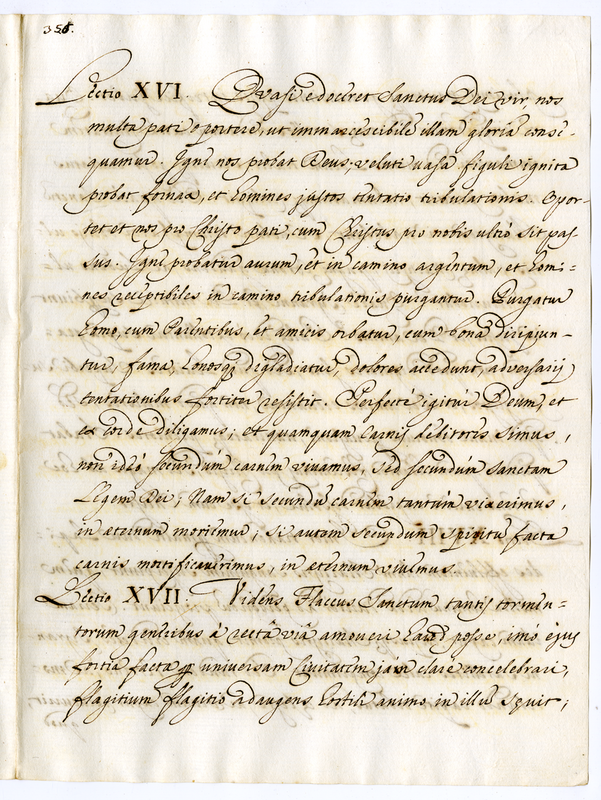 356.
Lectio XVI. Quasi edoceret Sanctus Dei vir, nos
multa pati oportere, ut immarcescibile illam gloriã conse-
quamur. Igne nos probat Deus, veluti vasa figuli ignita
probat fornax, et homines justos tentatio tribulationis. Opor-
tet et nos pro Christo pati, cum Christus pro nobis ultró sit pas-
sus. Igne probatur aurum, et in camino argentum, et homi=
nes receptibiles in camino tribulationis purgantur. Purgatur
homo, cum Parentibus, et amicis orbatur, cum bona diripiun-
tur, fama, honosq; degladiatur, dolores accedunt, adversarij
tentationibus fortiter resistit. Perfecté igitur Deum, et
ex corde diligamus; et quamquam Carnis debitores simus,
non ideó secundúm carnem vivamus, sed secundúm sanctam
Legem Dei; Nam si secundũ carnem tantúm vixerimus,
in æternum moriemur; si autem secundum spiritũ facta
carnis mortificaverimus, in æternum vivemus.
Lectio XVII. Videns Flaccus Sanctum tantis tormen=
torum generibus á rectâ viâ amoveri haud posse, imó ejus
fortia facta per universam Civitatem jam clare concelebrari,
flagitium flagitio adaugens hostili animo in illũ spuit;